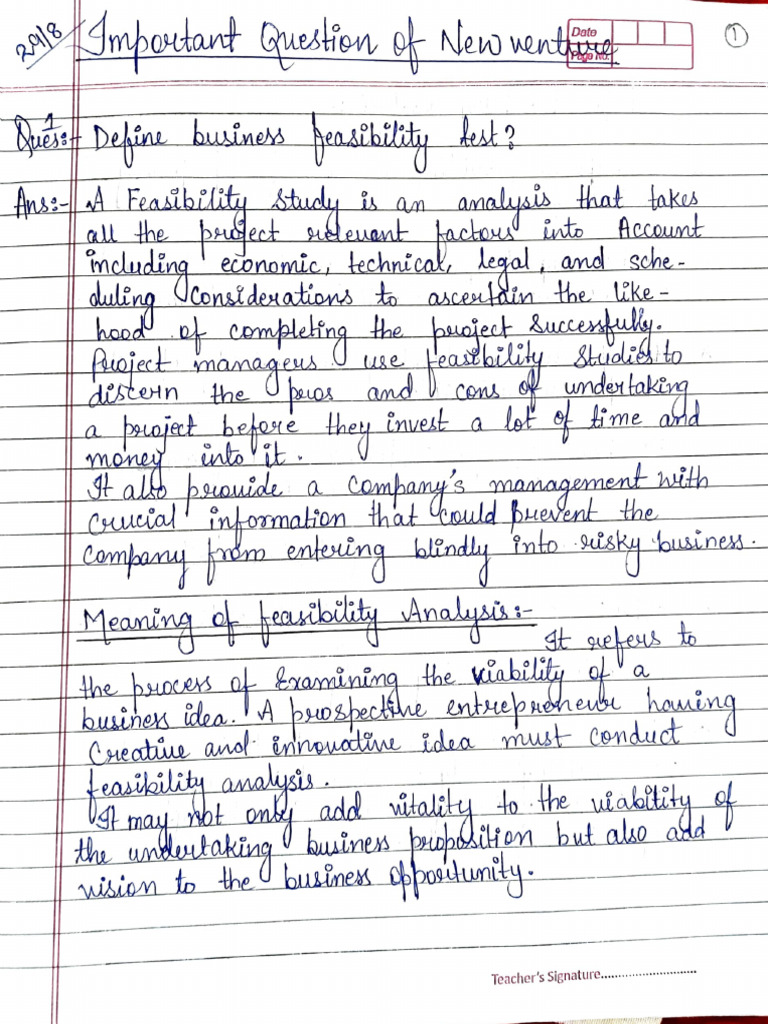 29/8
Important Question of New venture
Date
Page No.
1
Ques:- 1 Define business feasibility test?
Ans:- A Feasibility Study is an analysis that takes
all the project relevent factors into Account
including economic, technical, legal, and sche-
duling Considerations to ascertain the like-
hood of completing the project Successfully.
Project managers use feasibility Studies to
discern the pros and cons of undertaking
a project before they invest a lot of time and
money into it.
It also provide a company's management with
crucial information that could prevent the
company from entering blindly into risky business.
Meaning of feasibility Analysis:-
It refers to
the process of Examining the viability of a
business idea. A prospective entrepreneur having
Creative and innovative idea must conduct
feasibility analysis.
It may not only add vitality to the viability of
the undertaking business proposition but also add
vision to the business opportunity.
Teacher's Signature..............................